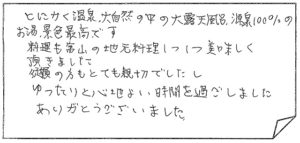 とにかく温泉、大自然の中の大露天風呂、源泉100%の
お湯、景色最高です
料理も富山の地元料理1つ1つ美味しく
頂きました
従業の方もとても親切でしたし
ゆったりと心地よい時間を過ごしました
ありがとうございました。